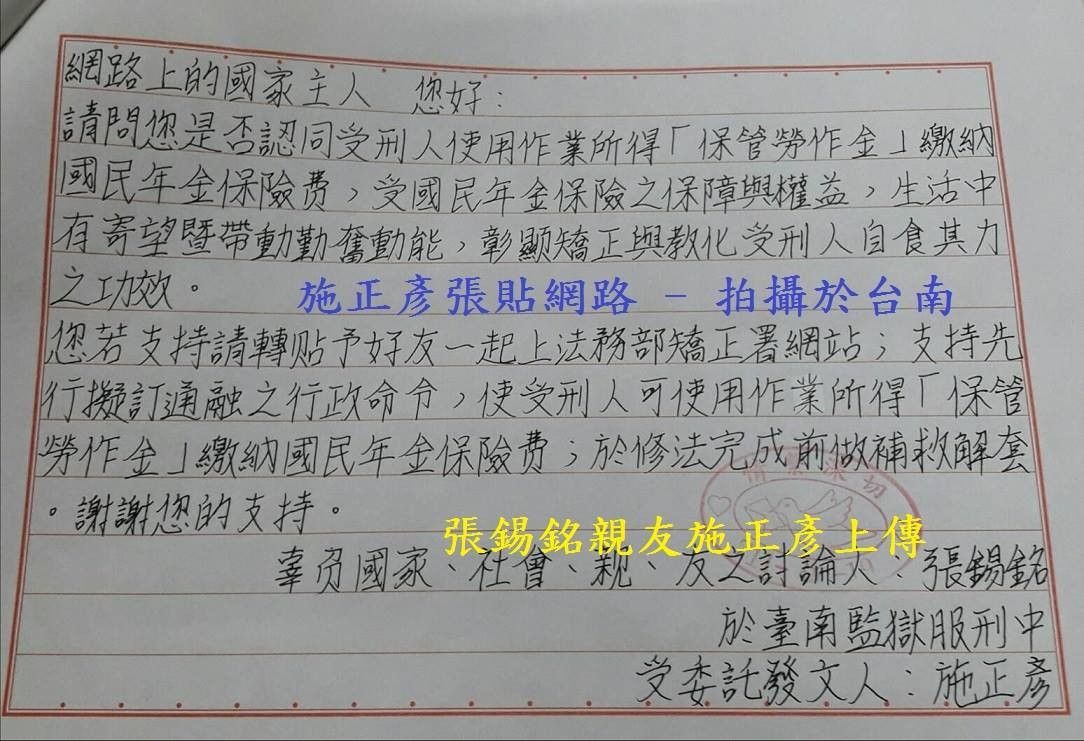 網路上的國家主人　您好：
請問您是否認同受刑人使用作業所得「保管勞作金」繳納
國民年金保險费，受國民年金保險之保障與權益，生活中
有寄望暨帶動勤奮動能，彰顯矯正與教化受刑人自食其力
之功效。
施正彥張貼網路 － 拍攝於台南
您若支持請轉贴予好友一起上法務部矯正署網站；支持先
行擬訂通融之行政命令，使受刑人可使用作業所得「保管
勞作金」繳納國民年金保險费；於修法完成前做補救解套
。謝謝您的支持。
張錫銘親友施正彥上傳
辜負國家、社會、親、友之討論人：張錫銘
於臺南監獄服刑中
受委託發文人：施正彥